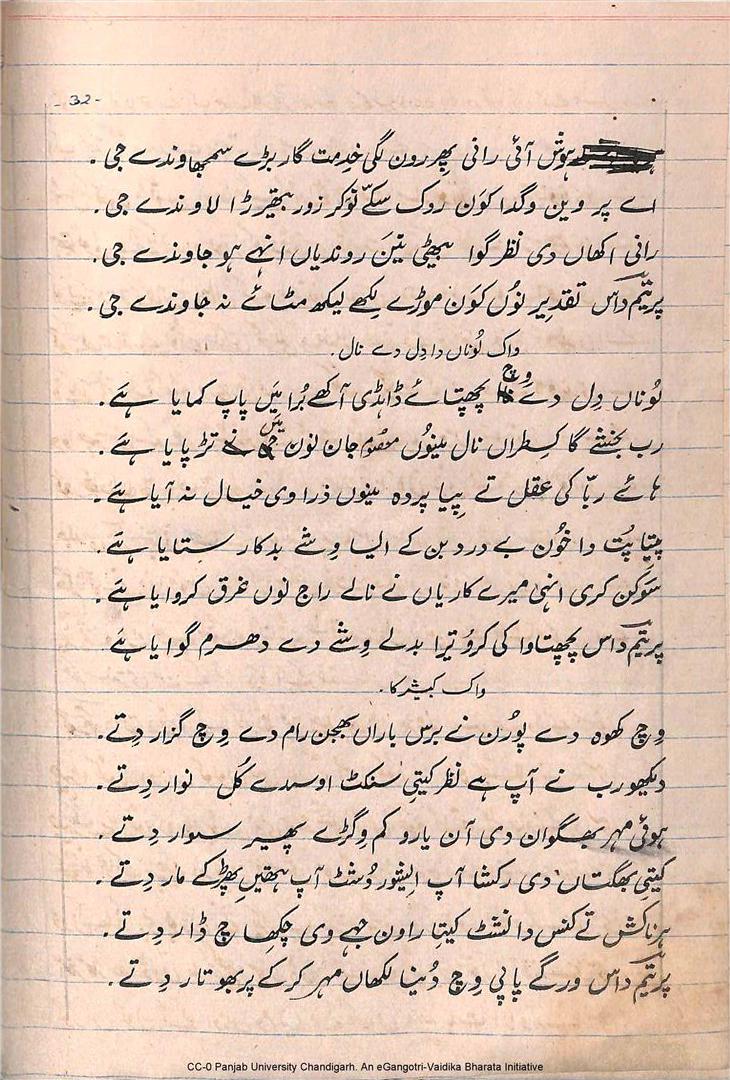 - 32 -
ہوش آئی رانی پھر رون لگی خدمت گار بڑے سمجھاوندے جی۔
اے پر وین وگدا کون روک سکے نوکر زور بتھیرڑا لاوندے جی۔
رانی اکھاں دی نظر گوا بیٹھی نین روندیاں انہے ہو جاوندے جی۔
پریتم داس تقدیر نوں کون موڑے لکھے لیکھ مٹائے نہ جاوندے جی۔
واک لوناں دا دل دے نال۔
لوناں دل دے وچ پچھتائے ڈاہڈی آکھے برا میں پاپ کمایا ہے۔
رب بخشے گا کسطراں نال مینوں معصوم جان نوں میں تڑپایا ہے۔
ہائے ربا کی عقل تے پیا پردہ مینوں ذرا وی خیال نہ آیا ہے۔
پیتا پت دا خون بے درد بن کے ایسا وشے بدکار ستایا ہے۔
سوکن کری انہی میرے کاریاں نے نالے راج نوں غرق کروایا ہے۔
پریتم داس پچھتاوا کی کرو تیرا بدلے وشے دے دھرم گوایا ہے
واک کیشر کا۔
وچ کھوہ دے پورن نے برس باراں بھجن رام دے وچ گزار دتے۔
دیکھو رب نے آپ ہے نظر کیتی سنکٹ اوسدے کل نوار دتے۔
ہوئی مہر بھگوان دی آن یارو کم وگڑے پھیر سوار دتے۔
کیتی بھگتاں دی رکشا آپ ایشور دُشٹ آپ ہتھیں پھڑکے مار دتے۔
ہرناکش تے کنس دا نشٹ کیتا راون جہے وی چکھا چ ڈار دتے۔
پریتم داس ورگے پاپی وچ دنیا لکھاں مہر کرکے پربھو تار دتے۔
CC-0 Panjab University Chandigarh. An eGangotri-Vaidika Bharata Initiative